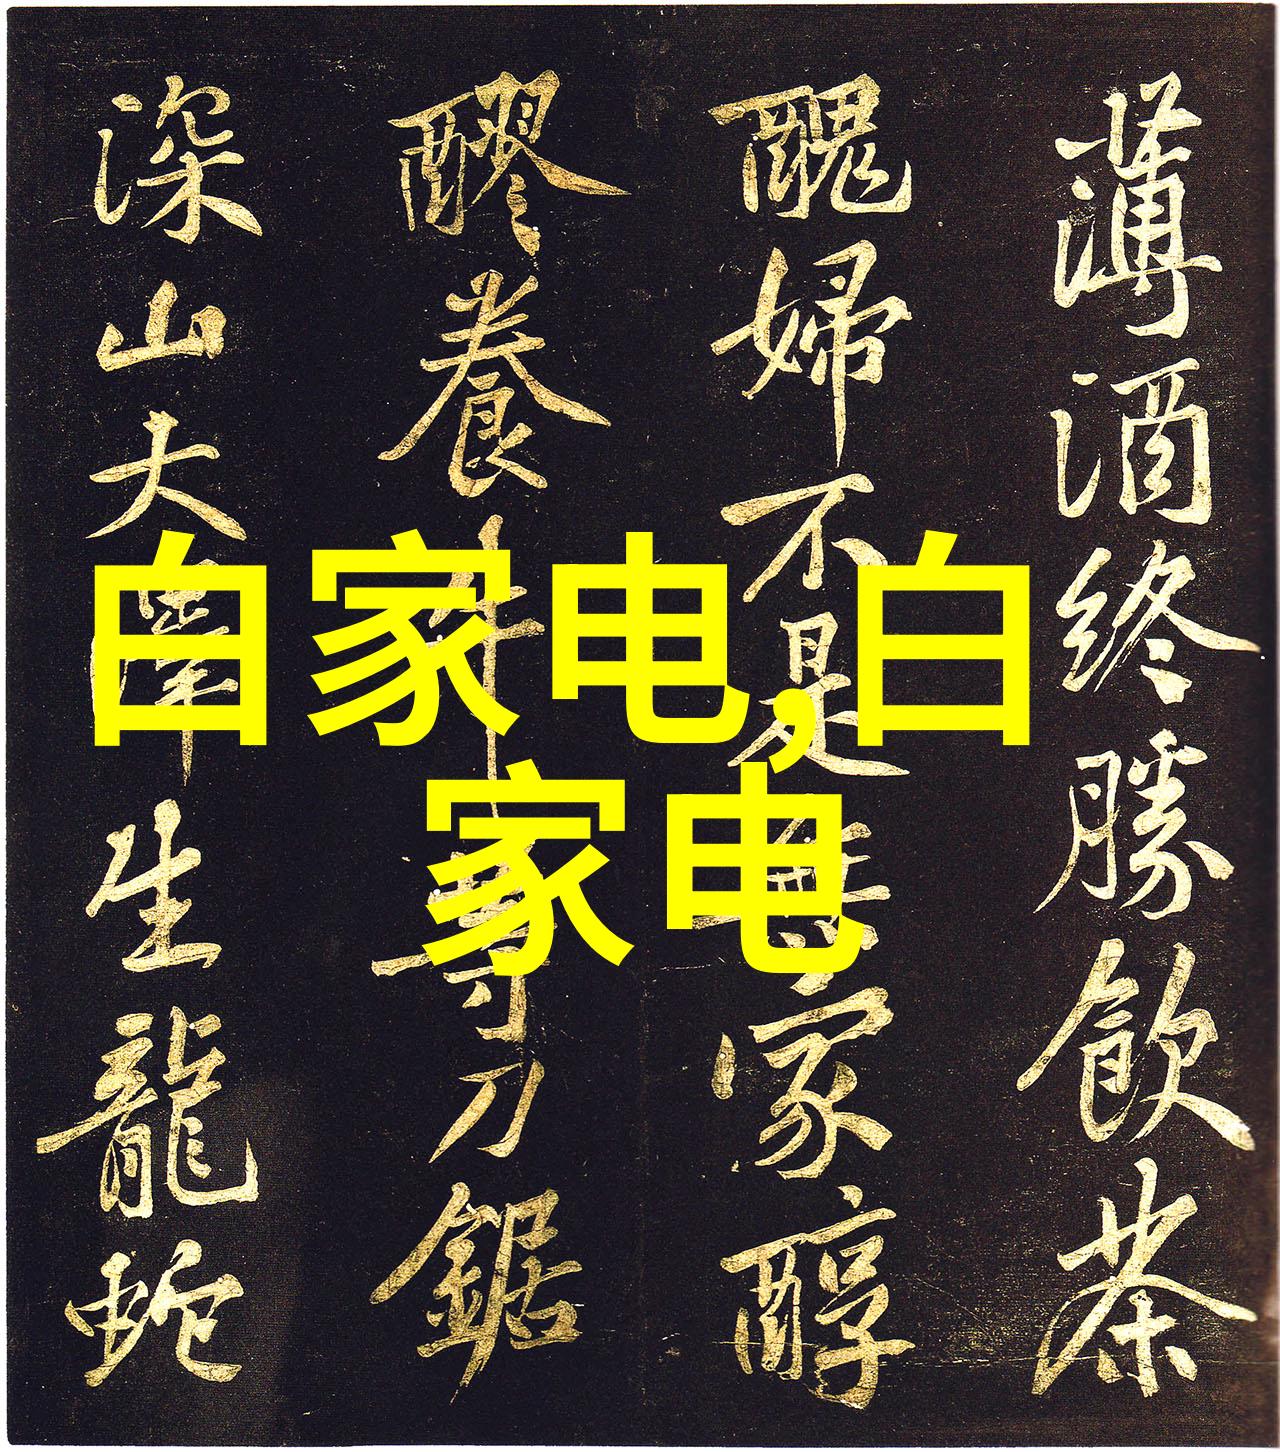 薄酒終勝飲茶
醜婦不是無家醇
醪養牛等刀鋸
深山大澤生龍蛇
白家电,白
家电